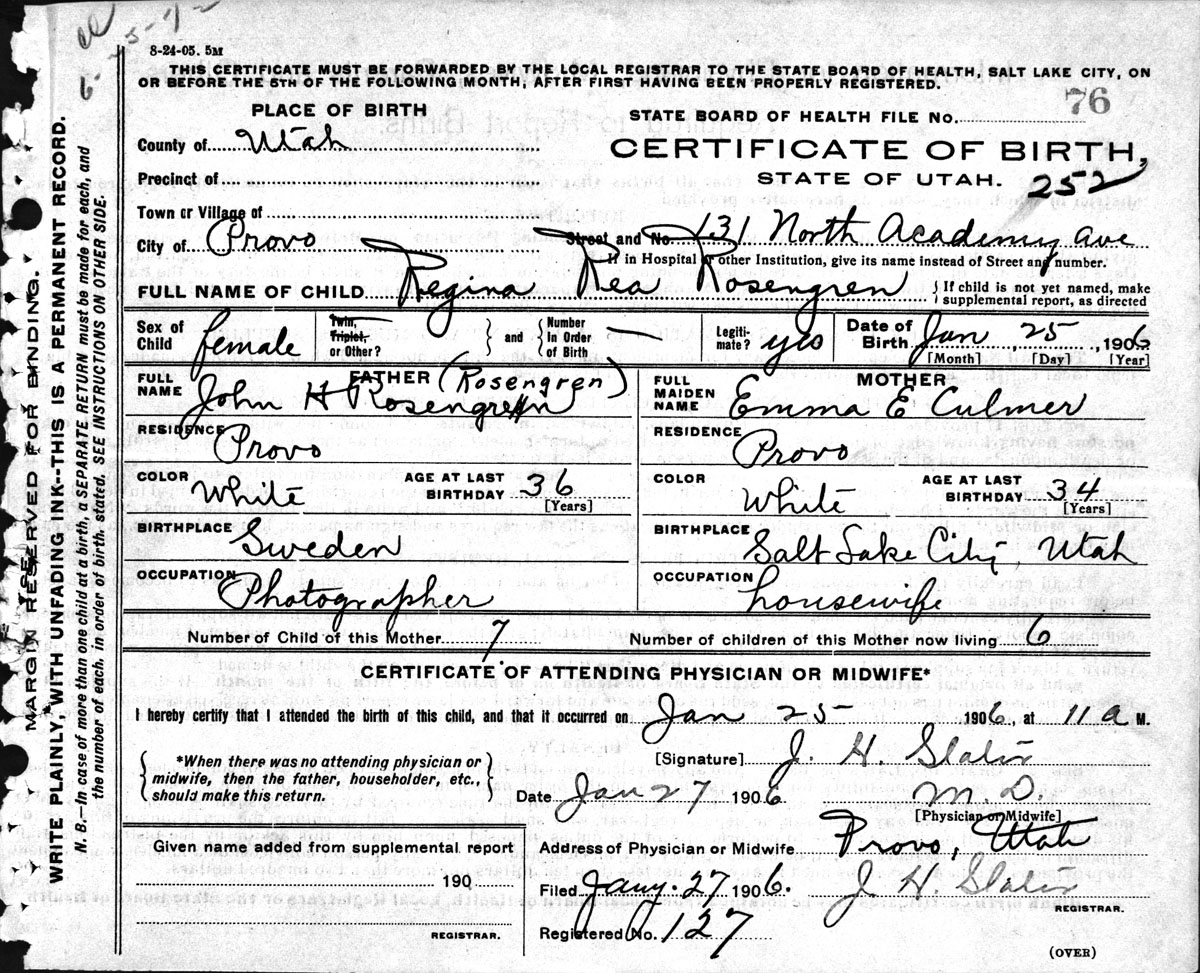 8-24-05. 5M
THIS CERTIFICATE MUST BE FORWARDED BY THE LOCAL REGISTRAR TO THE STATE BOARD OF HEALTH, SALT LAKE CITY, ON
OR BEFORE THE 5TH OF THE FOLLOWING MONTH, AFTER FIRST HAVING BEEN PROPERLY REGISTERED.
76
PLACE OF BIRTH
STATE BOARD OF HEALTH FILE No.
County of Utah
CERTIFICATE OF BIRTH,
Precinct of
STATE OF UTAH. 252
Town or Village of
City of Provo Street and No. 131 North Academy Ave
If in Hospital or other Institution, give its name instead of Street and number.
FULL NAME OF CHILD Regina Rea Rosengren { If child is not yet named, make
supplemental report, as directed
Sex of Child female Twin, Triplet, or Other? } and { Number In Order of Birth — Legiti-mate? yes Date of Birth Jan, 25, 1906
[Month] [Day] [Year]
FATHER (Rosengren)
FULL NAME John H Rosengren
MOTHER
FULL MAIDEN NAME Emma E Culmer
RESIDENCE Provo
RESIDENCE Provo
COLOR White AGE AT LAST BIRTHDAY 36 [Years]
COLOR White AGE AT LAST BIRTHDAY 34 [Years]
BIRTHPLACE Sweden
BIRTHPLACE Salt Lake City, Utah
OCCUPATION Photographer
OCCUPATION housewife
Number of Child of this Mother 7
Number of children of this Mother now living 6
CERTIFICATE OF ATTENDING PHYSICIAN OR MIDWIFE*
I hereby certify that I attended the birth of this child, and that it occurred on Jan 25 1906, at 11 a M.
{ *When there was no attending physician or
midwife, then the father, householder, etc.,
should make this return. }
[Signature] J. H. Slater
Date Jan 27 1906 M D.
[Physician or Midwife]
Address of Physician or Midwife Provo, Utah
Given name added from supplemental report
190
REGISTRAR.
Filed Jany. 27 1906. J H. Slater
REGISTRAR.
Registered No. 127
(OVER)
MARGIN RESERVED FOR BINDING.
WRITE PLAINLY, WITH UNFADING INK--THIS IS A PERMANENT RECORD.
N. B.—In case of more than one child at a birth, a SEPARATE RETURN must be made for each, and
the number of each, in order of birth, stated. SEE INSTRUCTIONS ON OTHER SIDE.